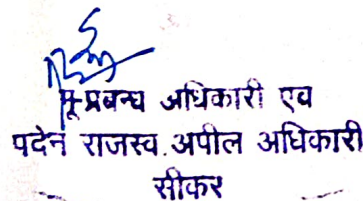 भू-प्रबन्ध अधिकारी एव
पदेन राजस्व.अपील अधिकारी
सीकर